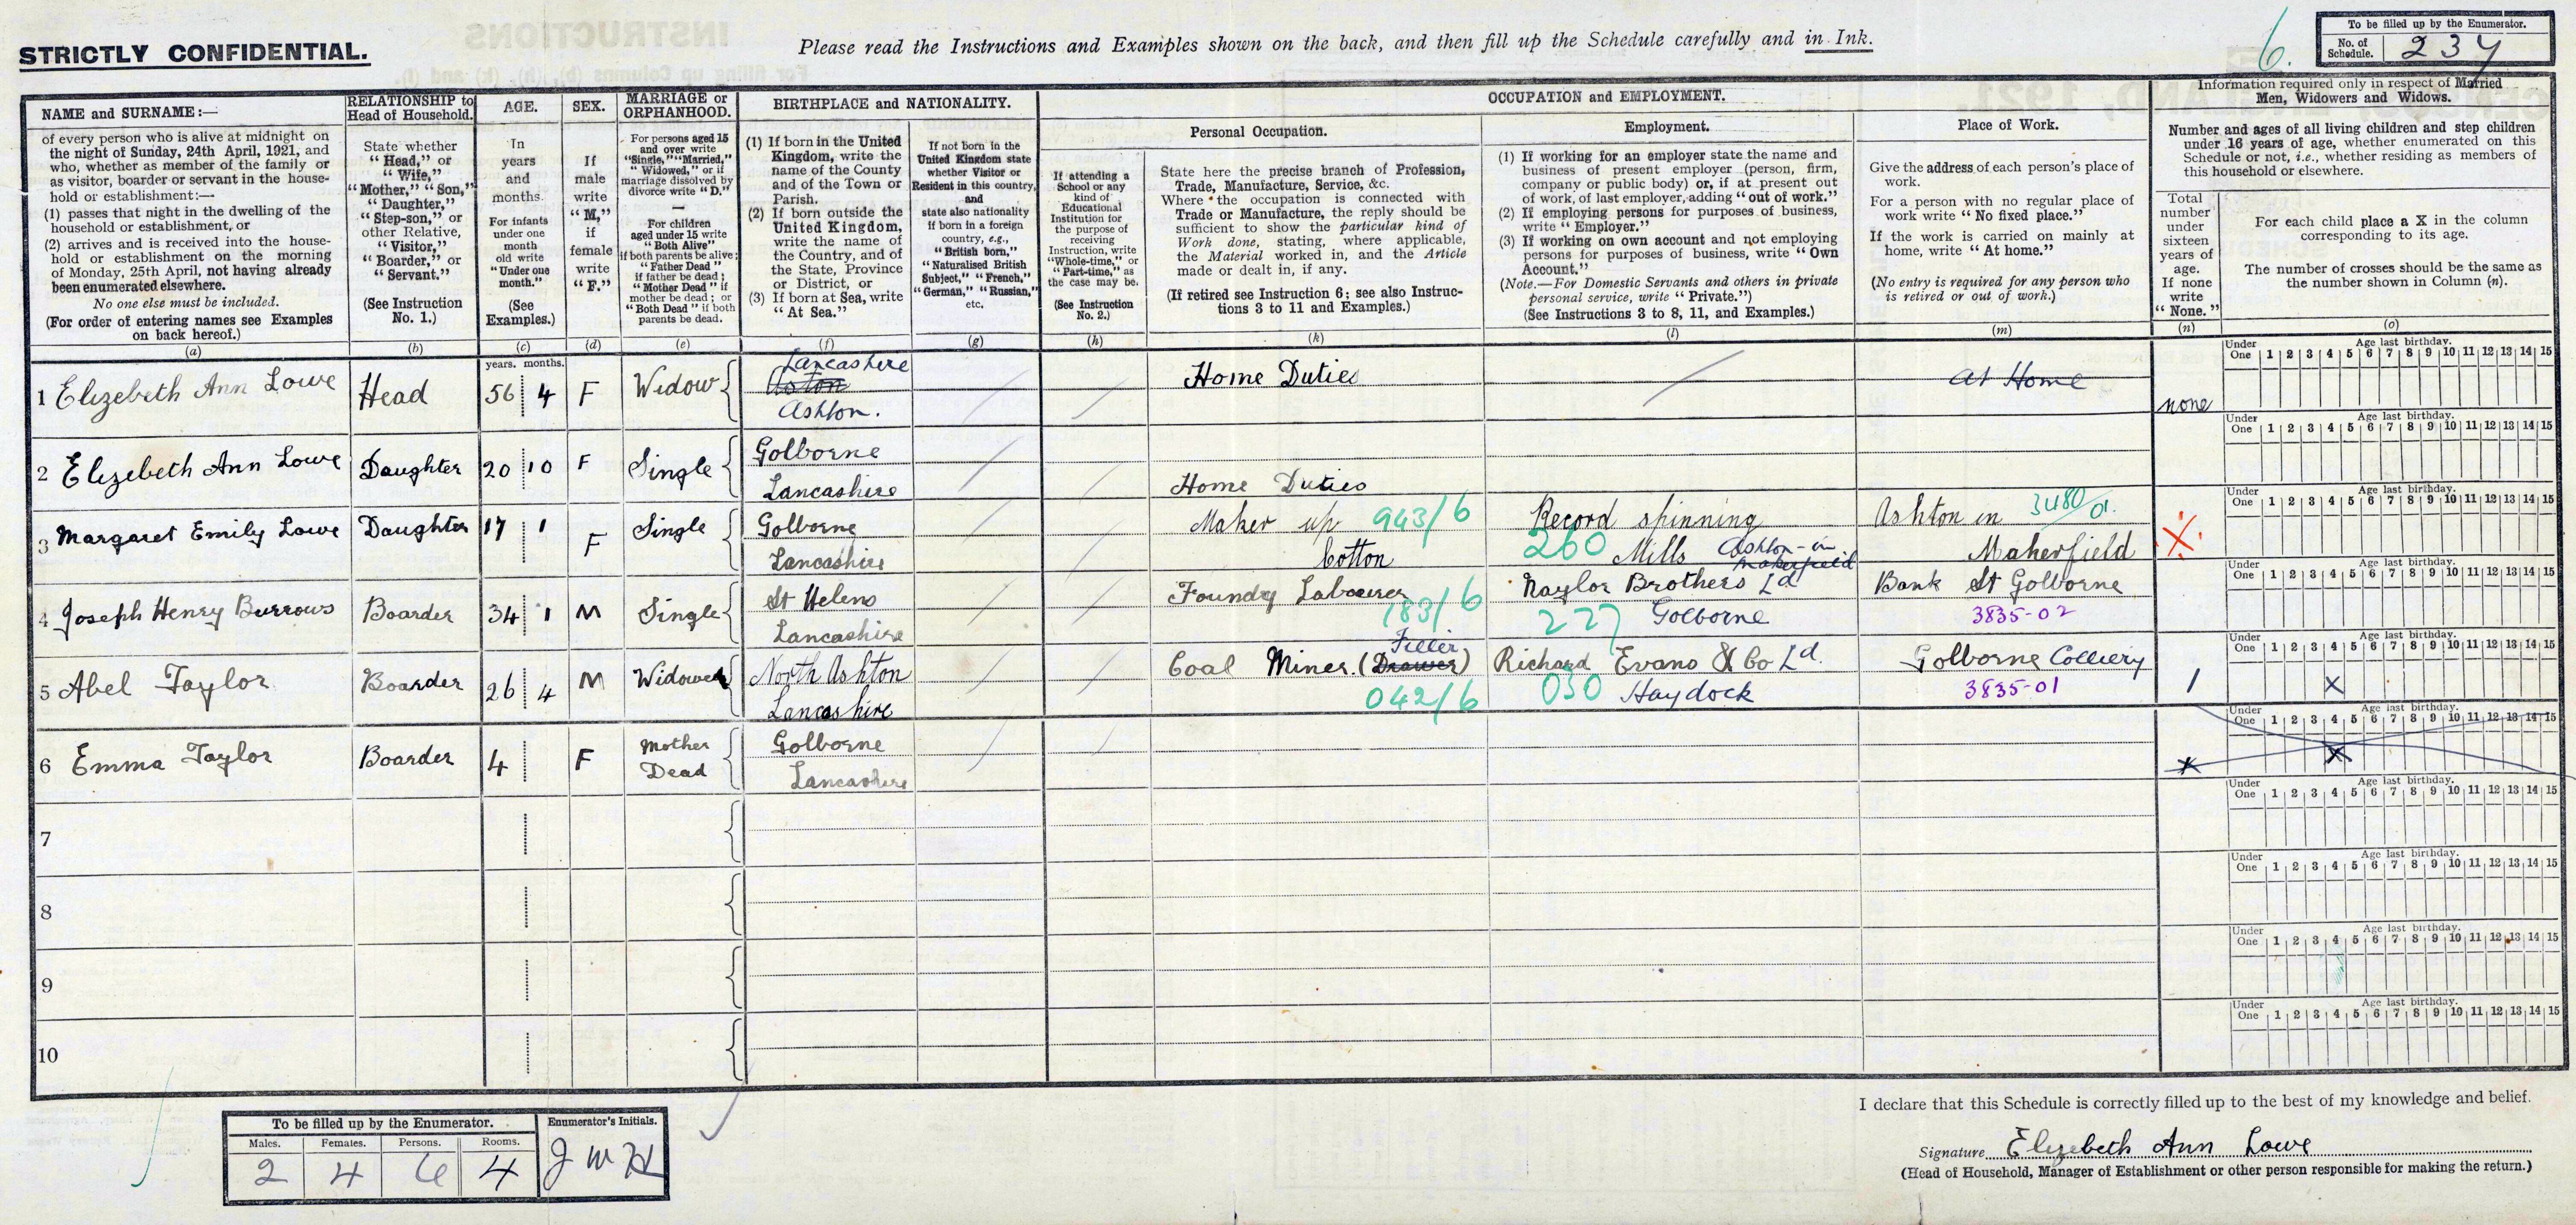 STRICTLY CONFIDENTIAL.
Please read the Instructions and Examples shown on the back, and then fill up the Schedule carefully and in Ink.
6.
To be filled up by the Enumerator.
No. of Schedule. 237
NAME and SURNAME:—
of every person who is alive at midnight on
the night of Sunday, 24th April, 1921, and
who, whether as member of the family or
as visitor, boarder or servant in the house-
hold or establishment:—
(1) passes that night in the dwelling of the
household or establishment, or
(2) arrives and is received into the house-
hold or establishment on the morning
of Monday, 25th April, not having already
been enumerated elsewhere.
No one else must be included.
(For order of entering names see Examples
on back hereof.)
(a)
RELATIONSHIP to
Head of Household.
State whether
"Head," or
"Wife,"
"Mother," "Son,"
"Daughter,"
"Step-son," or
other Relative,
"Visitor,"
"Boarder," or
"Servant."
(See Instruction
No. 1.)
(b)
AGE.
In
years
and
months.
For infants
under one
month
old write
"Under one
month."
(See
Examples.)
(c)
SEX.
If
male
write
"M,"
if
female
write
"F."
(d)
MARRIAGE or
ORPHANHOOD.
For persons aged 15
and over write
"Single," "Married,"
"Widowed," or if
marriage dissolved by
divorce write "D."
—
For children
aged under 15 write
"Both Alive"
if both parents be alive;
"Father Dead"
if father be dead;
"Mother Dead" if
mother be dead; or
"Both Dead" if both
parents be dead.
(e)
BIRTHPLACE and NATIONALITY.
(1) If born in the United
Kingdom, write the
name of the County
and of the Town or
Parish.
(2) If born outside the
United Kingdom,
write the name of
the Country, and of
the State, Province
or District, or
(3) If born at Sea, write
"At Sea."
(f)
If not born in the
United Kingdom state
whether Visitor or
Resident in this country,
and
state also nationality
if born in a foreign
country, e.g.,
"British born,"
"Naturalised British
Subject," "French,"
"German," "Russian,"
etc.
(g)
OCCUPATION and EMPLOYMENT.
If attending a
School or any
kind of
Educational
Institution for
the purpose of
receiving
Instruction, write
"Whole-time," or
"Part-time," as
the case may be.
(See Instruction
No. 2.)
(h)
Personal Occupation.
State here the precise branch of Profession,
Trade, Manufacture, Service, &c.
Where the occupation is connected with
Trade or Manufacture, the reply should be
sufficient to show the particular kind of
Work done, stating, where applicable,
the Material worked in, and the Article
made or dealt in, if any.
(If retired see Instruction 6; see also Instruc-
tions 3 to 11 and Examples.)
(k)
Employment.
(1) If working for an employer state the name and
business of present employer (person, firm,
company or public body) or, if at present out
of work, of last employer, adding "out of work."
(2) If employing persons for purposes of business,
write "Employer."
(3) If working on own account and not employing
persons for purposes of business, write "Own
Account."
(Note.—For Domestic Servants and others in private
personal service, write "Private.")
(See Instructions 3 to 8, 11, and Examples.)
(l)
Place of Work.
Give the address of each person's place of
work.
For a person with no regular place of
work write "No fixed place."
If the work is carried on mainly at
home, write "At home."
(No entry is required for any person who
is retired or out of work.)
(m)
Information required only in respect of Married
Men, Widowers and Widows.
Number and ages of all living children and step children
under 16 years of age, whether enumerated on this
Schedule or not, i.e., whether residing as members of
this household or elsewhere.
Total
number
under
sixteen
years of
age.
If none
write
"None."
(n)
For each child place a X in the column
corresponding to its age.
The number of crosses should be the same as
the number shown in Column (n).
(o)
years. months.
Under One Age last birthday. 1 2 3 4 5 6 7 8 9 10 11 12 13 14 15
1 Elizebeth Ann Lowe Head 56 4 F Widow Lancashire Aston Ashton. Home Duties At Home none
Under One Age last birthday. 1 2 3 4 5 6 7 8 9 10 11 12 13 14 15
2 Elizebeth Ann Lowe Daughter 20 10 F Single Golborne Lancashire Home Duties
Under One Age last birthday. 1 2 3 4 5 6 7 8 9 10 11 12 13 14 15
3 Margaret Emily Lowe Daughter 17 1 F Single Golborne Lancashire Maker up 943/6 Cotton Record spinning 260 Mills Ashton-in Makerfield Ashton in 3480/01. Makerfield X
Under One Age last birthday. 1 2 3 4 5 6 7 8 9 10 11 12 13 14 15
4 Joseph Henry Burrows Boarder 34 1 M Single St Helens Lancashire Foundry Labourer 183/6 Naylor Brothers Ld 227 Golborne Bank St Golborne 3835-02
Under One Age last birthday. 1 2 3 4 5 6 7 8 9 10 11 12 13 14 15
5 Abel Taylor Boarder 26 4 M Widower North Ashton Lancashire Coal Miner (Drawer) Filler 042/6 Richard Evans & Co Ld. 030 Haydock Golborne Colliery 3835-01 1 X
Under One Age last birthday. 1 2 3 4 5 6 7 8 9 10 11 12 13 14 15
6 Emma Taylor Boarder 4 F Mother Dead Golborne Lancashire X
Under One Age last birthday. 1 2 3 4 5 6 7 8 9 10 11 12 13 14 15
7
Under One Age last birthday. 1 2 3 4 5 6 7 8 9 10 11 12 13 14 15
8
Under One Age last birthday. 1 2 3 4 5 6 7 8 9 10 11 12 13 14 15
9
Under One Age last birthday. 1 2 3 4 5 6 7 8 9 10 11 12 13 14 15
10
To be filled up by the Enumerator.
Males. Females. Persons. Rooms.
2 4 6 4
Enumerator's Initials.
J W H
I declare that this Schedule is correctly filled up to the best of my knowledge and belief.
Signature Elizebeth Ann Lowe
(Head of Household, Manager of Establishment or other person responsible for making the return.)